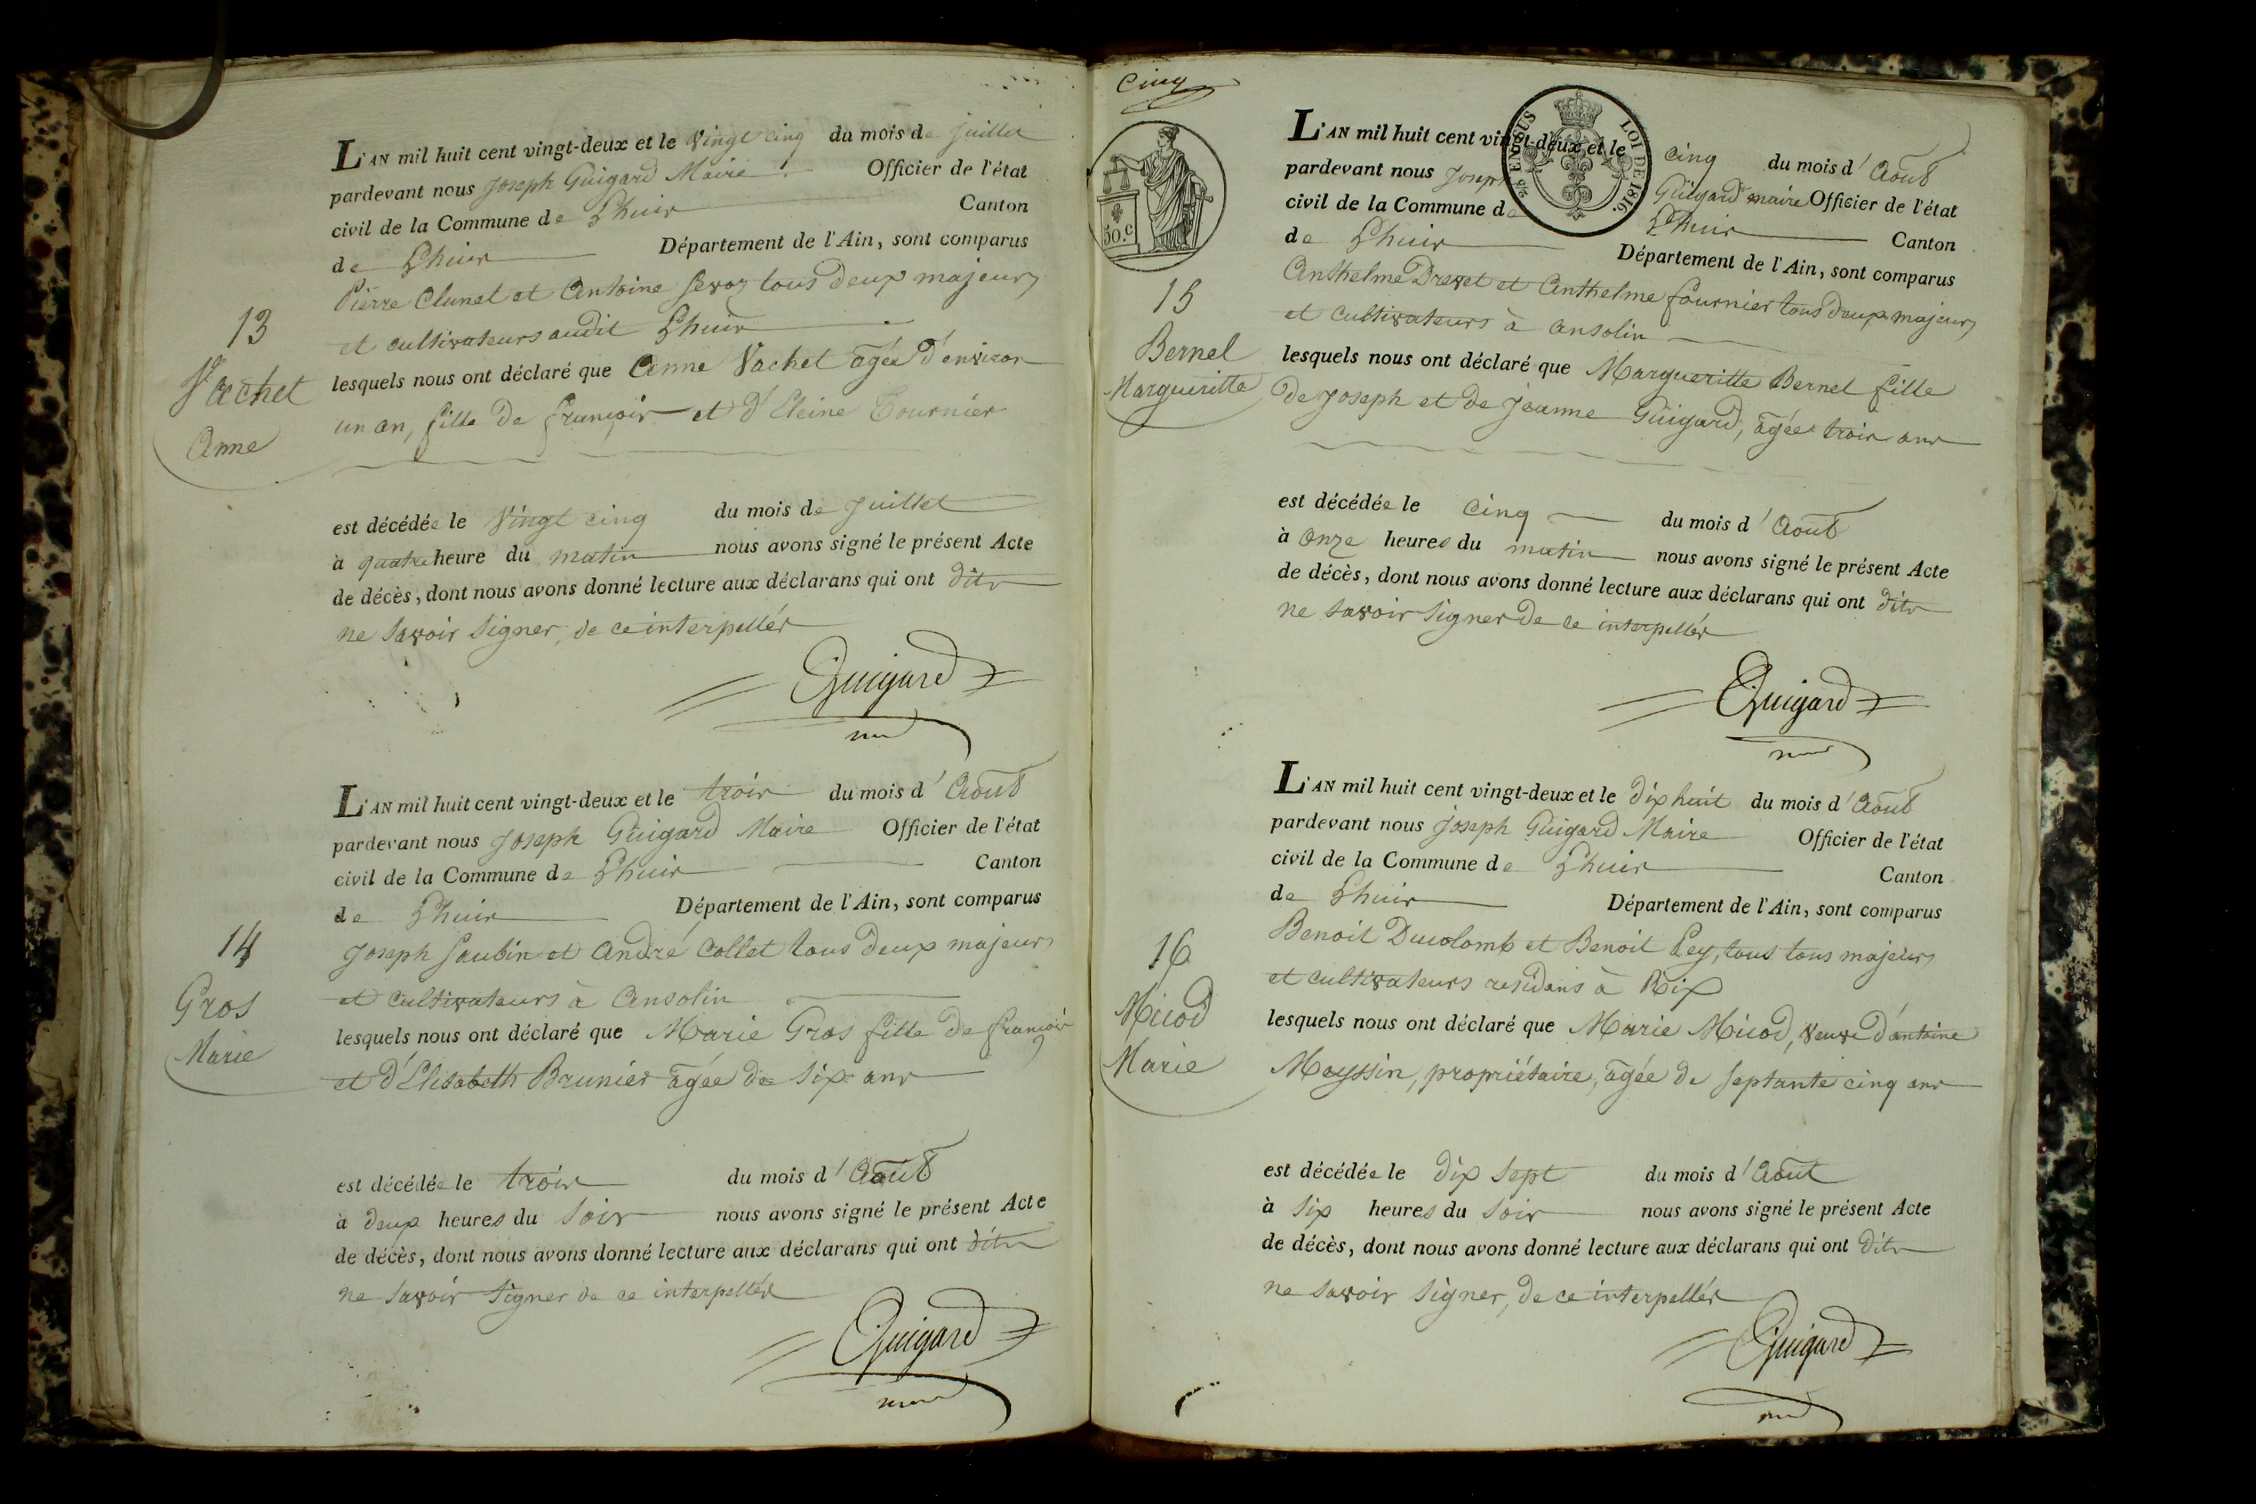 L'AN mil huit cent vingt-deux et le vingt cinq du mois de Juillet
pardevant nous Joseph Guigard Maire Officier de l'état
civil de la Commune de Lhuis Canton
de Lhuis Département de l'Ain, sont comparus
Pierre Clunet et Antoine Sevoz tous deux majeurs
13
et cultivateurs audit Lhuis
Vachet
lesquels nous ont déclaré que Anne Vachet agée d'environ
Anne
un an, fille de françois et d'Cleine Tournier
est décédée le Vingt cinq du mois de Juillet
à quatre heure du matin nous avons signé le présent Acte
de décès, dont nous avons donné lecture aux déclarans qui ont dits
ne savoir signer, de ce interpellés
Guigard
L'AN mil huit cent vingt-deux et le trois du mois d'Août
pardevant nous Joseph Guigard Maire Officier de l'état
civil de la Commune de Lhuis Canton
de Lhuis Département de l'Ain, sont comparus
14
Joseph Soubin et André Collet tous deux majeurs
Gros
et cultivateurs à Ansolin
Marie
lesquels nous ont déclaré que Marie Gros fille de françois
et d'Elisabeth Brunier agée de six ans
est décédée le trois du mois d'Août
à deux heures du soir nous avons signé le présent Acte
de décès, dont nous avons donné lecture aux déclarans qui ont dits
ne savoir signer de ce interpellés
Guigard
Cinq
50.c
25 EN SUS
LOI DE 1816.
L'AN mil huit cent vingt-deux et le cinq du mois d'Août
pardevant nous Joseph Guigard maire Officier de l'état
civil de la Commune de Lhuis Canton
de Lhuis Département de l'Ain, sont comparus
15
Anthelme Drevet et Anthelme fournier tous deux majeurs
et cultivateurs à ansolin
Bernel
Margueritte
lesquels nous ont déclaré que Margueritte Bernel fille
de Joseph et de Jeanne Guigard, agée trois ans
est décédée le cinq du mois d'Août
à Onze heures du matin nous avons signé le présent Acte
de décès, dont nous avons donné lecture aux déclarans qui ont dits
ne savoir signer de ce interpellés
Guigard
L'AN mil huit cent vingt-deux et le dix huit du mois d'Août
pardevant nous Joseph Guigard Maire Officier de l'état
civil de la Commune de Lhuis Canton
de Lhuis Département de l'Ain, sont comparus
16
Benoit Ducolomb et Benoit Pey, tous tous majeurs
et cultivateurs residans à Rix
Micod
Marie
lesquels nous ont déclaré que Marie Micod, veuve d'antoine
Moyssin, propriétaire, agée de septante cinq ans
est décédée le dix sept du mois d'Août
à six heures du soir nous avons signé le présent Acte
de décès, dont nous avons donné lecture aux déclarans qui ont dits
ne savoir signer, de ce interpellés
Guigard